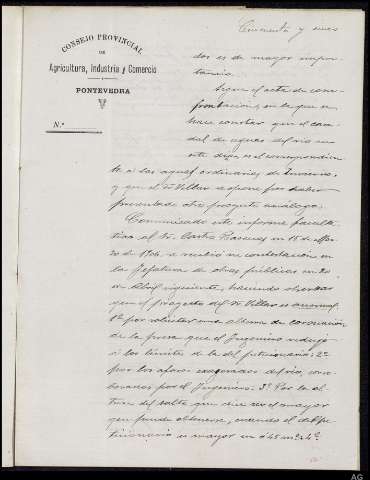 Cincuenta y nueve
CONSEJO PROVINCIAL
DE
Agricultura, Industria y Comercio
PONTEVEDRA
N.º
dos es de mayor impor-
tancia.
Sigue el acta de con-
frontación, en la que se
hace constar que el cau-
dal de aguas del río en
este día, es el correspondien-
te a las aguas ordinarias de invierno,
y que el Sr. Villar se opone por haber
presentado otro proyecto análogo.
Comunicado este informe faculta-
tivo al Sr. Castro en 15 de Mar-
zo de 1906 se recibió su contestación en
la Jefatura de obras públicas en 20
de Abril siguiente, haciendo observar
que el proyecto del Sr. Villar es anormal
1º por solicitar una altura de coronación
de la presa que el Ingeniero redujo
a los límites de la del peticionario: 2º
por los aforos exagerados del río, com-
probados por el Ingeniero: 3º Por la al-
tura del salto que dice ser el mayor
que puede obtenerse, cuando el del pe-
ticionario es mayor en 0'45 m: 4º
AG